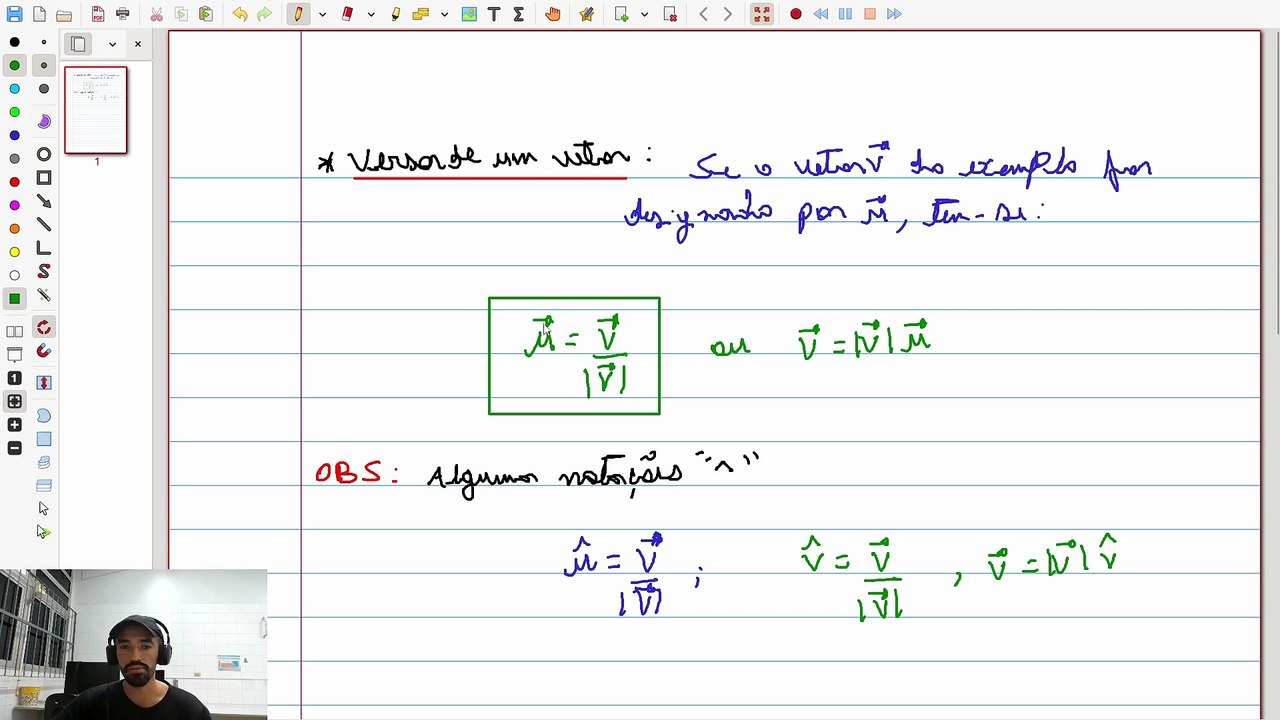 * Versor de um vetor : Se o vetor v⃗ do exemplo for
designado por u⃗, tem-se:
u⃗ = v⃗ / |v⃗| ou v⃗ = |v⃗| u⃗
OBS: Algumas notações "^"
û = v⃗ / |v⃗| ; v̂ = v⃗ / |v⃗| , v⃗ = |v⃗| v̂
1